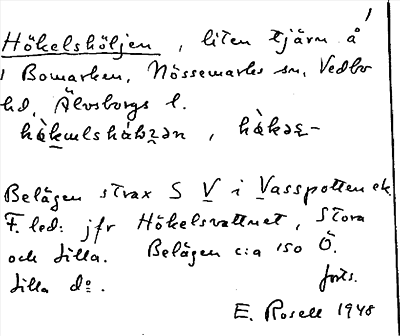 Hökelshöljen, liten tjärn å
Bomarken, Nössemarks sn, Vedbo
hd, Älvsborgs l.
Belägen strax S V i Vasspotten ek.
F. led: jfr Hökelsvattnet, Stora
och Lilla. Belägen c:a 150 Ö.
Lilla do. forts.
E. Rosell 1948